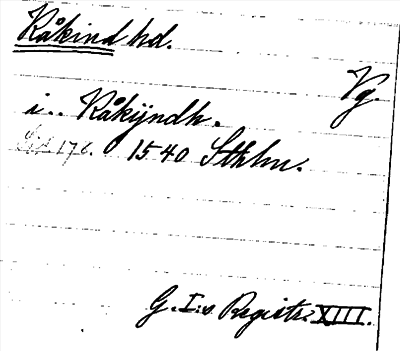 Kåkind hd.
Vg.
i.. Kåkÿndh.
Sid 176. 1540 Sthlm.
G. I:s Registr. XIII.